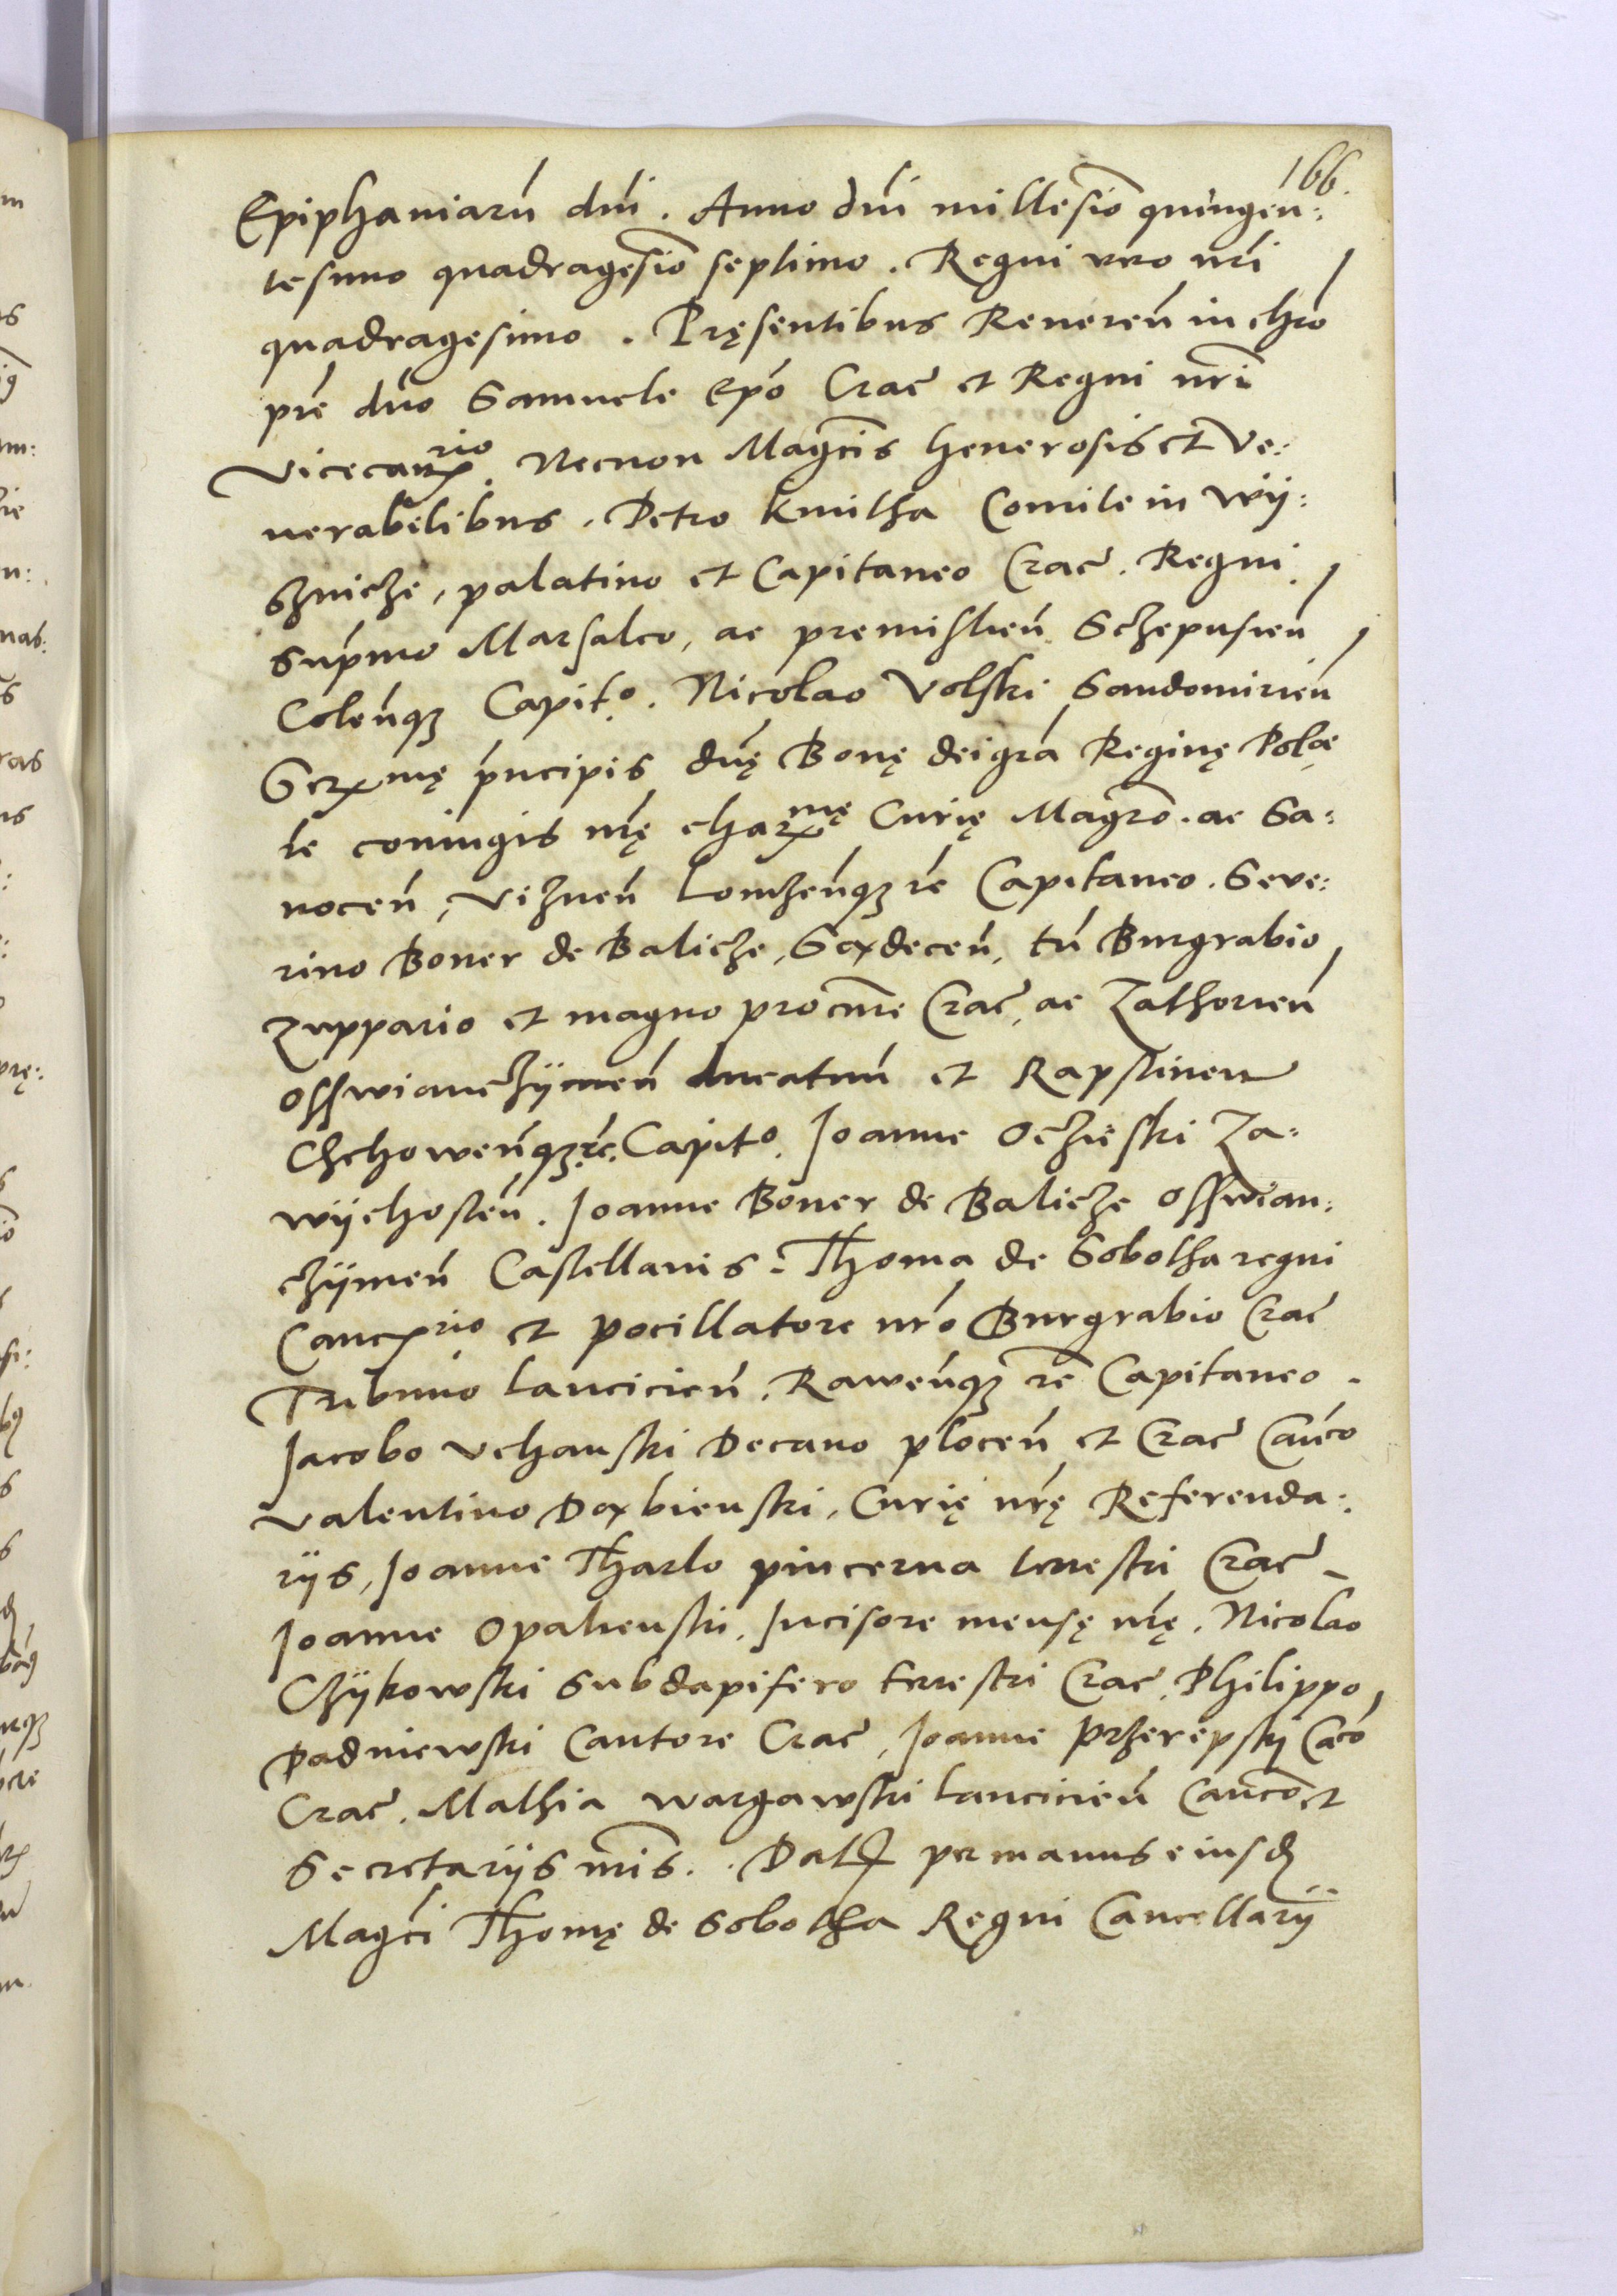 166.
Epiphaniarū dńi. Anno dńi millesiō quingen:
tesimo quadragesiō septimo. Regni vero nŕi
quadragesimo. Pręsentibus Reueren̄ in chŕo
pŕe dńo Samuele Epō Crac̄ et Regni nŕi
Vicecanrio. Necnon Magc̄is Generosis et Ve:
nerabilibus. Petro Kmitha Comite in Wij:
szniche, palatino et Capitaneo Crac̄. Regni
Supŕmo Marsalco, ac premislien̄ Schepusien̄
Colen̄q3 Capito. Nicolao Volski Sandomirien̄
Serxmę pńcipis dńę Bonę dei grá Reginę Polæ
te coniugis nŕę charxmę Curię Magrō. ac Sa:
nocen̄, Viznen̄ Lomzen̄q3 te Capitaneo. Seve:
rino Boner de Baliche, Sexdecen̄, tū Burgrabio
Zuppario et magno procnŕe Crac̄, ac Zathorien̄
Osswianchijmen̄ ducatuū et Rapstinen̄
Chchowen̄q3 te. Capito. Joanne Ochieski Za:
wijchosten̄. Joanne Boner de Baliche Osswian:
chijmen̄ Castellanis. Thoma de Sobotha regni
Cancxrio et pocillatore nŕo Burgrabio Crac̄
Tribuno Lancicien̄. Rawen̄q3 te Capitaneo.
Jacobo Vchanski Decano plocen̄ et Crac̄ Cańco
Valentino Dexbienski, Curię nŕę Referenda:
rijs, Joanne Tharlo pincerna terrestri Crac̄
Joanne Opalienski, Incisore mensę nŕę. Nicolao
Czijkowski Subdapifero terrestri Crac̄, Philippo
Padniewski Cantore Crac̄, Joanne przerępskj Cać̄o
Crac̄. Mathia wargawski Lancicien̄ Canco et
Secretarijs nŕis. Dat per manus eiusd
Magc̄i Thomę de Sobotha Regni Cancellarij